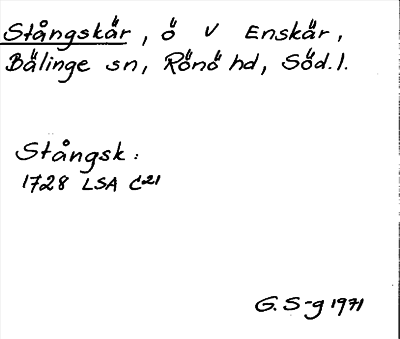 Stångskär, ö V Enskär,
Bälinge sn, Rönö hd, Söd.l.
Stångsk:
1728 LSA C21
G.S-g 1971